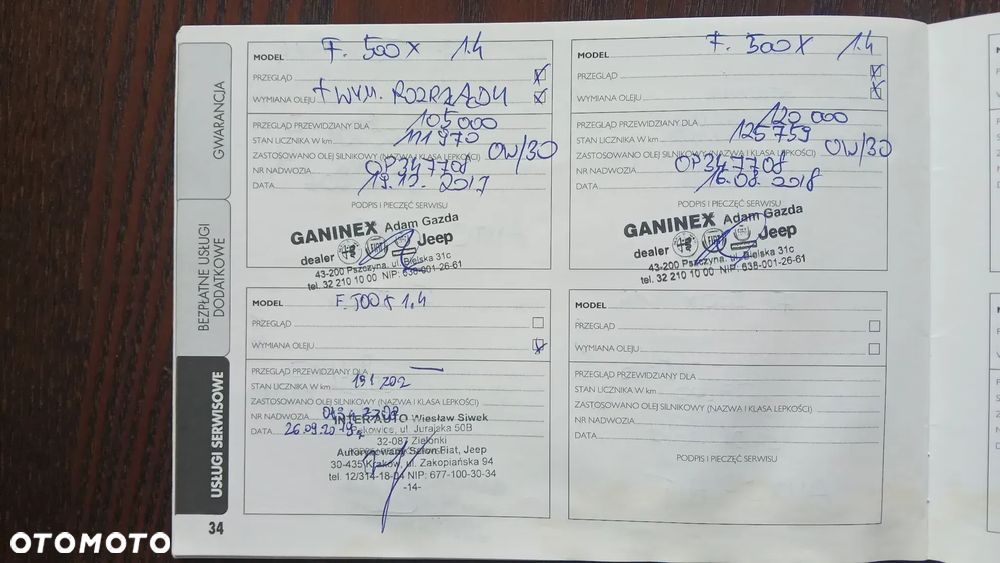 GWARANCJA
BEZPŁATNE USŁUGI
DODATKOWE
USŁUGI SERWISOWE
34
MODEL F. 500X 1.4
PRZEGLĄD
WYMIANA OLEJU + WYM. ROZRZĄDU
PRZEGLĄD PRZEWIDZIANY DLA 105000
STAN LICZNIKA W km 111970
ZASTOSOWANO OLEJ SILNIKOWY (NAZWA I KLASA LEPKOŚCI) 0W/30
NR NADWOZIA OP347708
DATA 19.12.2017
PODPIS I PIECZĘĆ SERWISU
GANINEX Adam Gazda
dealer Jeep
43-200 Pszczyna, ul. Bielska 31c
tel. 32 210 10 00 NIP: 638-001-26-61
MODEL F. 500X 1.4
PRZEGLĄD
WYMIANA OLEJU
PRZEGLĄD PRZEWIDZIANY DLA 120 000
STAN LICZNIKA W km 125759
ZASTOSOWANO OLEJ SILNIKOWY (NAZWA I KLASA LEPKOŚCI) 0W/30
NR NADWOZIA OP347708
DATA 16.08.2018
PODPIS I PIECZĘĆ SERWISU
GANINEX Adam Gazda
dealer Jeep
43-200 Pszczyna, ul. Bielska 31c
tel. 32 210 10 00 NIP: 638-001-26-61
MODEL F. 500X 1.4
PRZEGLĄD
WYMIANA OLEJU
PRZEGLĄD PRZEWIDZIANY DLA —
STAN LICZNIKA W km 191 202
ZASTOSOWANO OLEJ SILNIKOWY (NAZWA I KLASA LEPKOŚCI)
NR NADWOZIA
DATA 26.09.2019
INTER AUTO Wiesław Siwek
Pękowice, ul. Jurajska 50B
32-087 Zielonki
Autoryzowany Salon Fiat, Jeep
30-435 Kraków, ul. Zakopiańska 94
tel. 12/314-18-04 NIP: 677-100-30-34
-14-
MODEL
PRZEGLĄD
WYMIANA OLEJU
PRZEGLĄD PRZEWIDZIANY DLA
STAN LICZNIKA W km
ZASTOSOWANO OLEJ SILNIKOWY (NAZWA I KLASA LEPKOŚCI)
NR NADWOZIA
DATA
PODPIS I PIECZĘĆ SERWISU
OTOMOTO